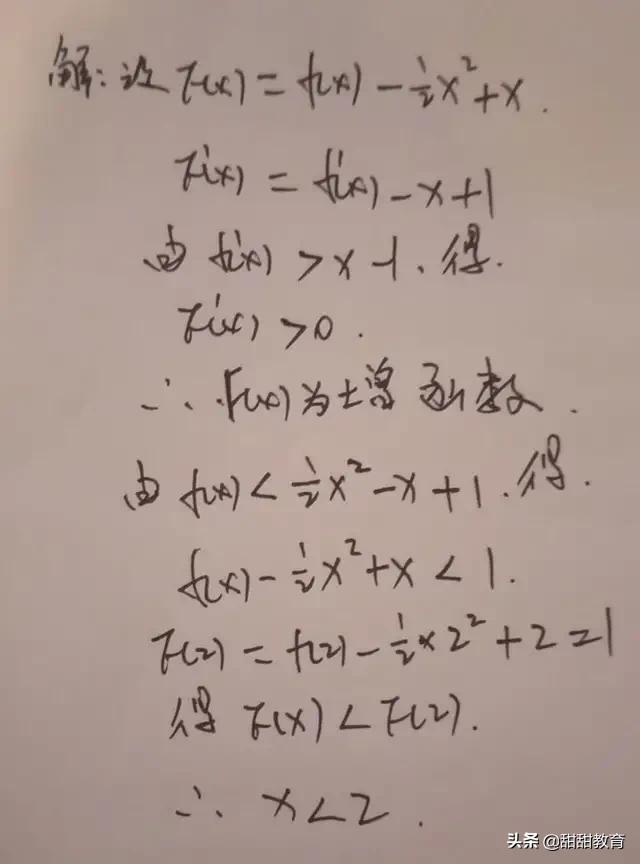 解:设F(x)=f(x)-½x²+x.
F'(x)=f'(x)-x+1
由f'(x)>x-1.得.
F'(x)>0.
∴F(x)为增函数.
由f(x)<½x²-x+1.得.
f(x)-½x²+x<1.
F(2)=f(2)-½×2²+2=1
得F(x)<F(2).
∴x<2.
头条 @甜甜教育